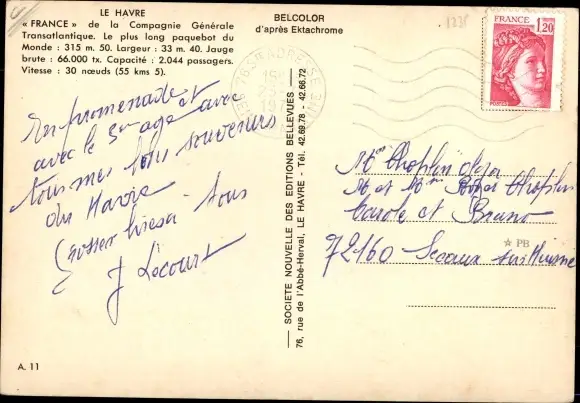 LE HAVRE
« FRANCE » de la Compagnie Générale
Transatlantique. Le plus long paquebot du
Monde : 315 m. 50. Largeur : 33 m. 40. Jauge
brute : 66.000 tx. Capacité : 2.044 passagers.
Vitesse : 30 nœuds (55 kms 5).
BELCOLOR
d'après Ektachrome
En promenade
avec le 3me age et avec
tous mes bons souvenirs
du Havre
Grosses bises a tous
J Lecourt
A. 11
— SOCIETE NOUVELLE DES EDITIONS BELLEVUES —
76, rue de l'Abbé-Herval, LE HAVRE - Tél. 42.69.78 - 42.66.72
1238
FRANCE
1,20
76 STE ADRESSE
Mme Choplin
M et Mme Roger Choplin
Carole et Bruno
72160 Sceaux sur Huisne
PB